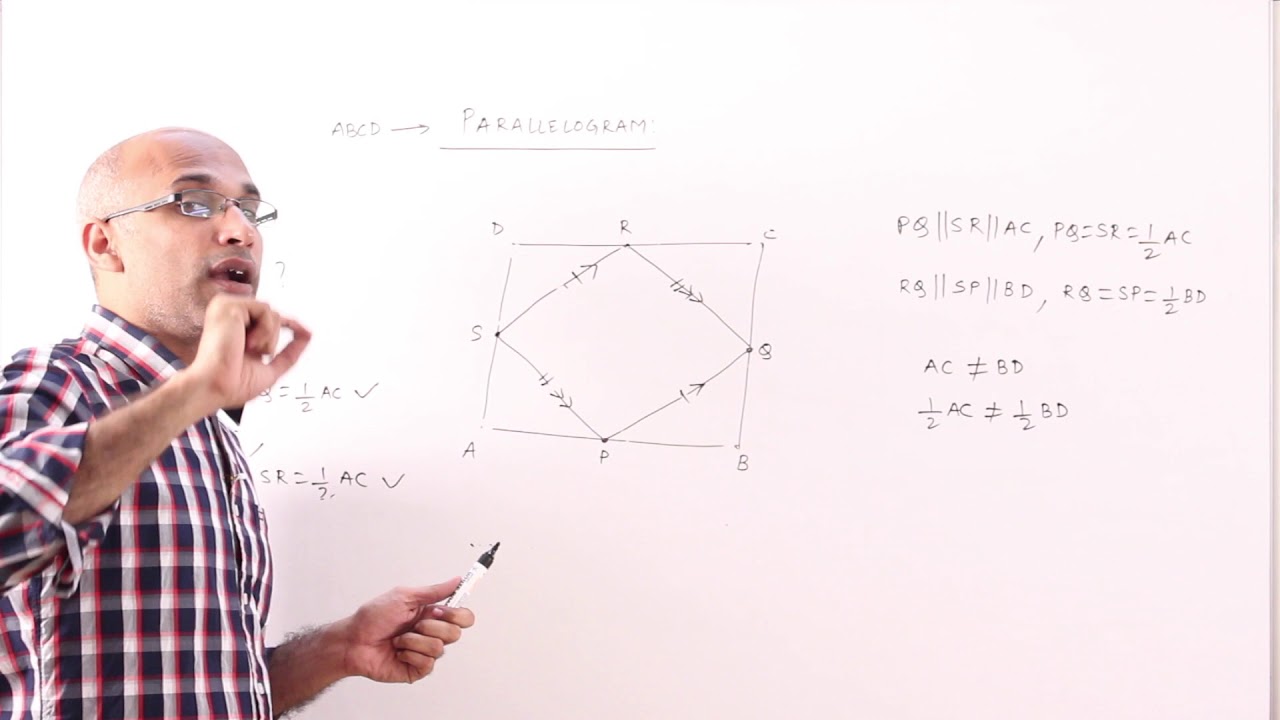 ABCD → PARALLELOGRAM:
D R C
S Q
A P B
?
Q = 1/2 AC ✓
SR = 1/2 AC ✓
PQ || SR || AC, PQ = SR = 1/2 AC
RQ || SP || BD, RQ = SP = 1/2 BD
AC ≠ BD
1/2 AC ≠ 1/2 BD